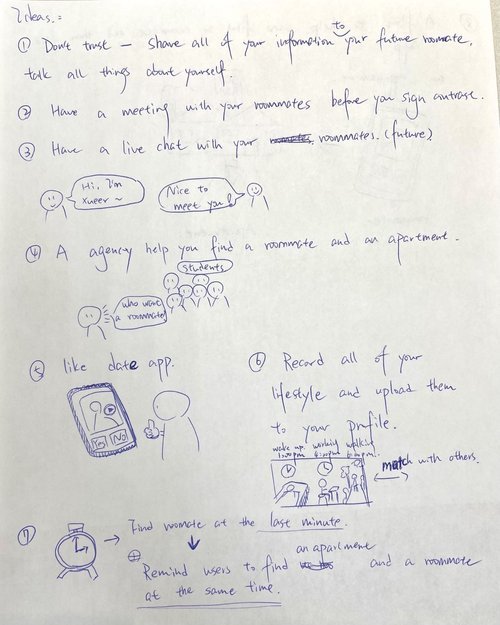 Ideas.:
① Don't trust — Share all of your information to your future roommate.
talk all things about yourself.
② Have a meeting with your roommates before you sign contrase.
③ Have a live chat with your roommates. (future).
Hi, I'm
Xueer ~
Nice to
meet you!
④ A agency help you find a roommate and an apartment.
students
who want
a roommate?
⑤ like date app.
Yes No
⑥ Record all of your
lifestyle and upload them
to your profile.
wake up working walking
match with others.
⑦ Find roomate at the last minute.
Remind users to find an apartment and a roommate
at the same time.